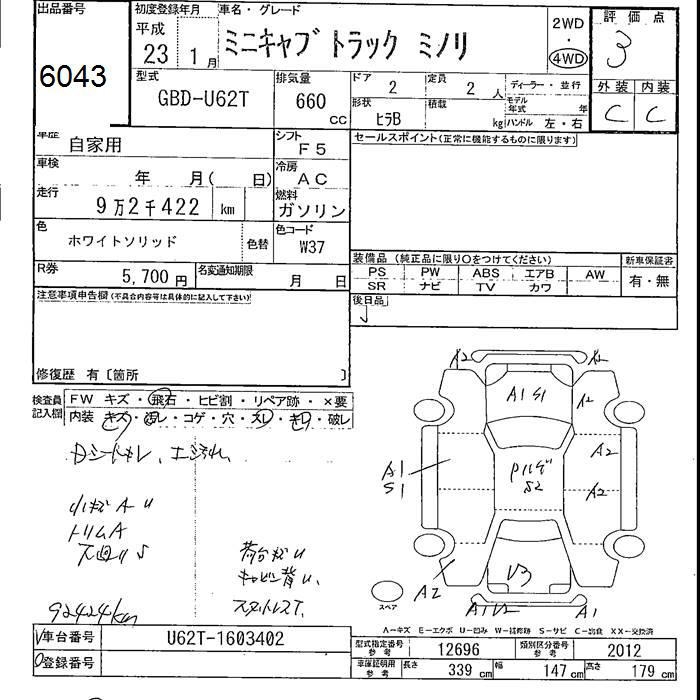 出品番号
6043
初度登録年月
平成
23 1月
車名・グレード
ミニキャブ トラック ミノリ
2WD
・
4WD
評価点
3
外装 内装
C C
型式
GBD-U62T
排気量
660
CC
ドア
2
定員
2人
形状
ヒラB
積載
kg
ディーラー・並行
モデル年式 年
ハンドル 左・右
車歴
自家用
シフト
F5
車検
年 月( 日)
冷房
AC
走行
9万2千422 km
燃料
ガソリン
色
ホワイトソリッド
色替
色コード
W37
R券
5,700円
名変通知期限
月 日
セールスポイント(正常に機能するものに限ります)
装備品 (純正品に限り○をつけてください)
PS PW ABS エアB AW
SR ナビ TV カワ
新車保証書
有・無
後日品
注意事項申告欄(不具合内容等は具体的に記入して下さい)
修復歴 有〔箇所 〕
検査員記入欄
FW キズ・飛石・ヒビ割・リペア跡・×要
内装 キズ・汚レ・コゲ・穴・スレ・キレ・破レ
小キズA凹
トリムA
荷台サビ凹
キャビン背凹、
スタットレスT.
92424km
A2
A1 S1
A2
A2
A2
A1
S1
S2
U3
A2
A1
スペア
A-キズ E-エクボ U-凹み W-補修跡 S-サビ C-腐食 XX-交換済
V車台番号
U62T-1603402
O登録番号
型式指定番号
参考
12696
類別区分番号
参考
2012
車庫証明用
参考
長さ
339 cm
幅
147 cm
高さ
179 cm